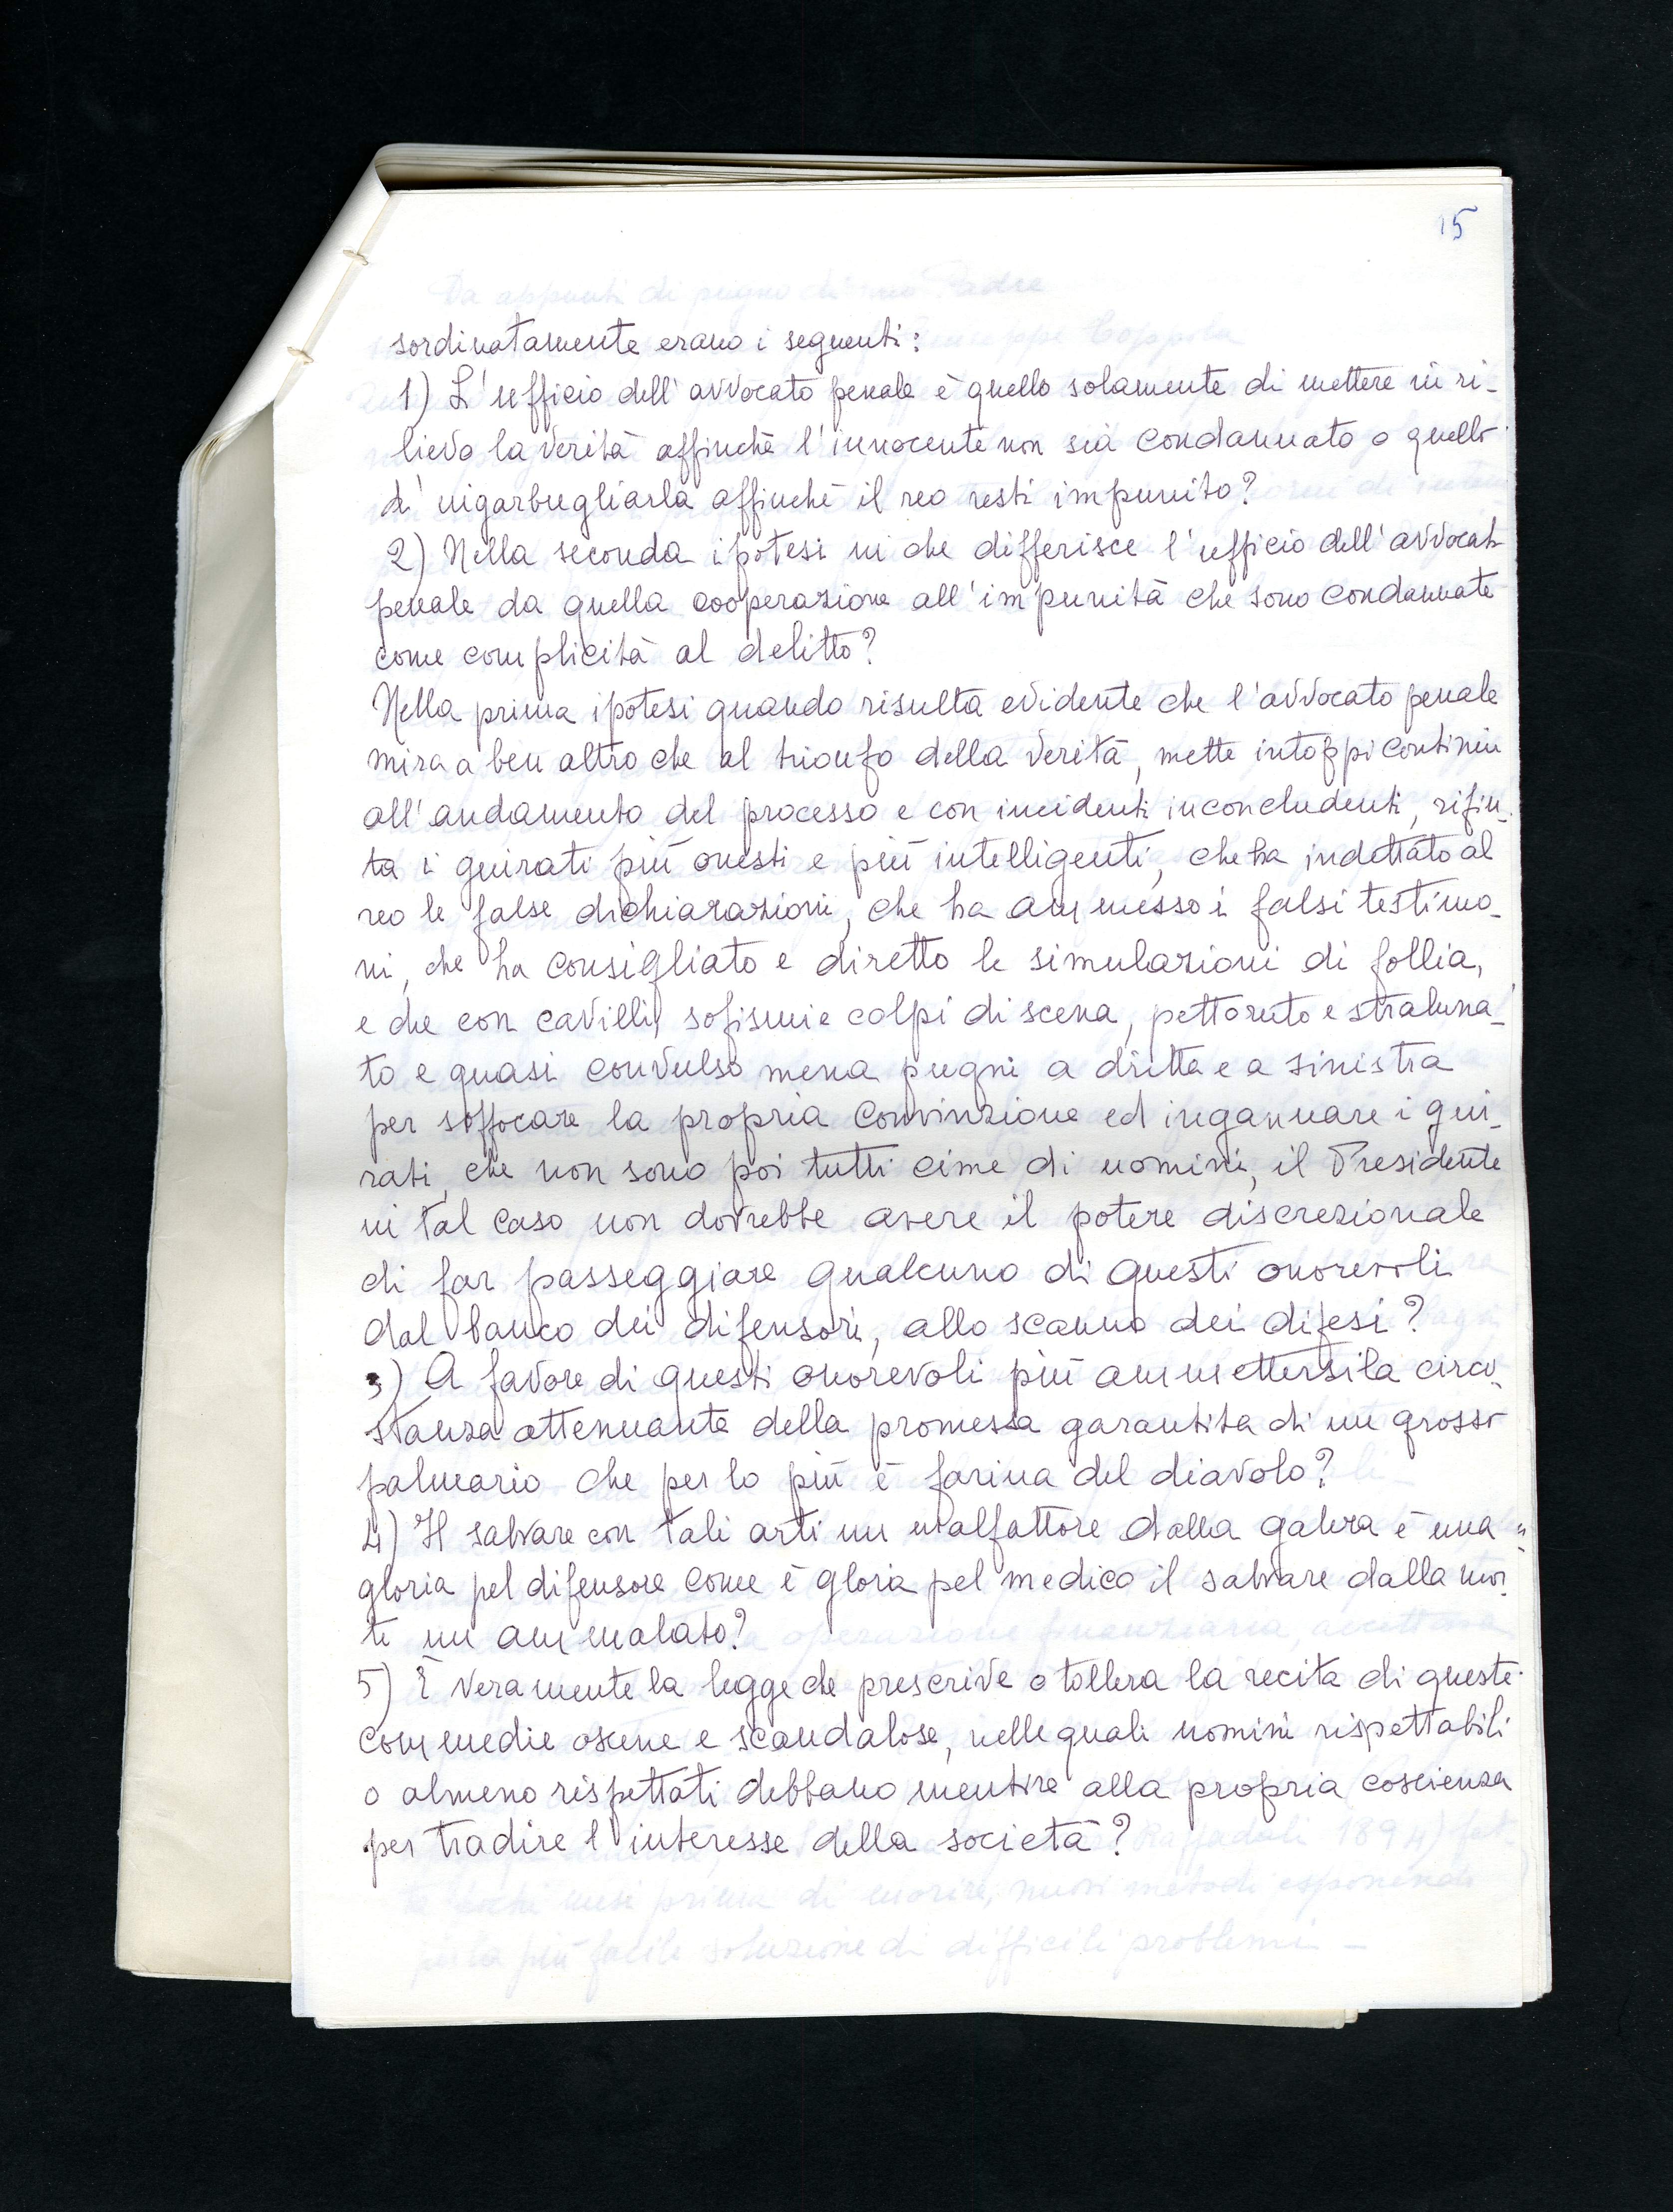 15
sordinatamente erano i seguenti:
1) L'ufficio dell'avvocato penale è quello solamente di mettere in ri-
lievo la verità affinchè l'innocente non sia condannato o quello
di ingarbugliarla affinchè il reo resti impunito?
2) Nella seconda ipotesi in che differisce l'ufficio dell'avvocato
penale da quella cooperazione all'impunità che sono condannate
come complicità al delitto?
Nella prima ipotesi quando risulta evidente che l'avvocato penale
mira a ben altro che al trionfo della verità, mette intoppi continui
all'andamento del processo e con incidenti inconcludenti, rifiu-
ta i giurati più onesti e più intelligenti, che ha indettato al
reo le false dichiarazioni, che ha ammesso i falsi testimo-
ni, che ha consigliato e diretto le simulazioni di follia,
e che con cavilli, sofismi e colpi di scena, pettoruto e straluna-
to e quasi convulso mena pugni a dritta e a sinistra
per soffocare la propria convinzione ed ingannare i giu-
rati, che non sono poi tutti cime di uomini, il Presidente
in tal caso non dovrebbe avere il potere discrezionale
di far passeggiare qualcuno di questi onorevoli
dal banco dei difensori, allo scanno dei difesi?
3) A favore di questi onorevoli può ammettersi la circo-
stanza attenuante della promessa garantita di un grosso
palmario che per lo più è farina del diavolo?
4) Il salvare con tali arti un malfattore dalla galera è una =
gloria pel difensore come è gloria pel medico il salvare dalla mor-
te un ammalato?
5) È veramente la legge che prescrive o tollera la recita di queste
commedie oscene e scandalose, nelle quali uomini rispettabili
o almeno rispettati debbano mentire alla propria coscienza
per tradire l'interesse della società?